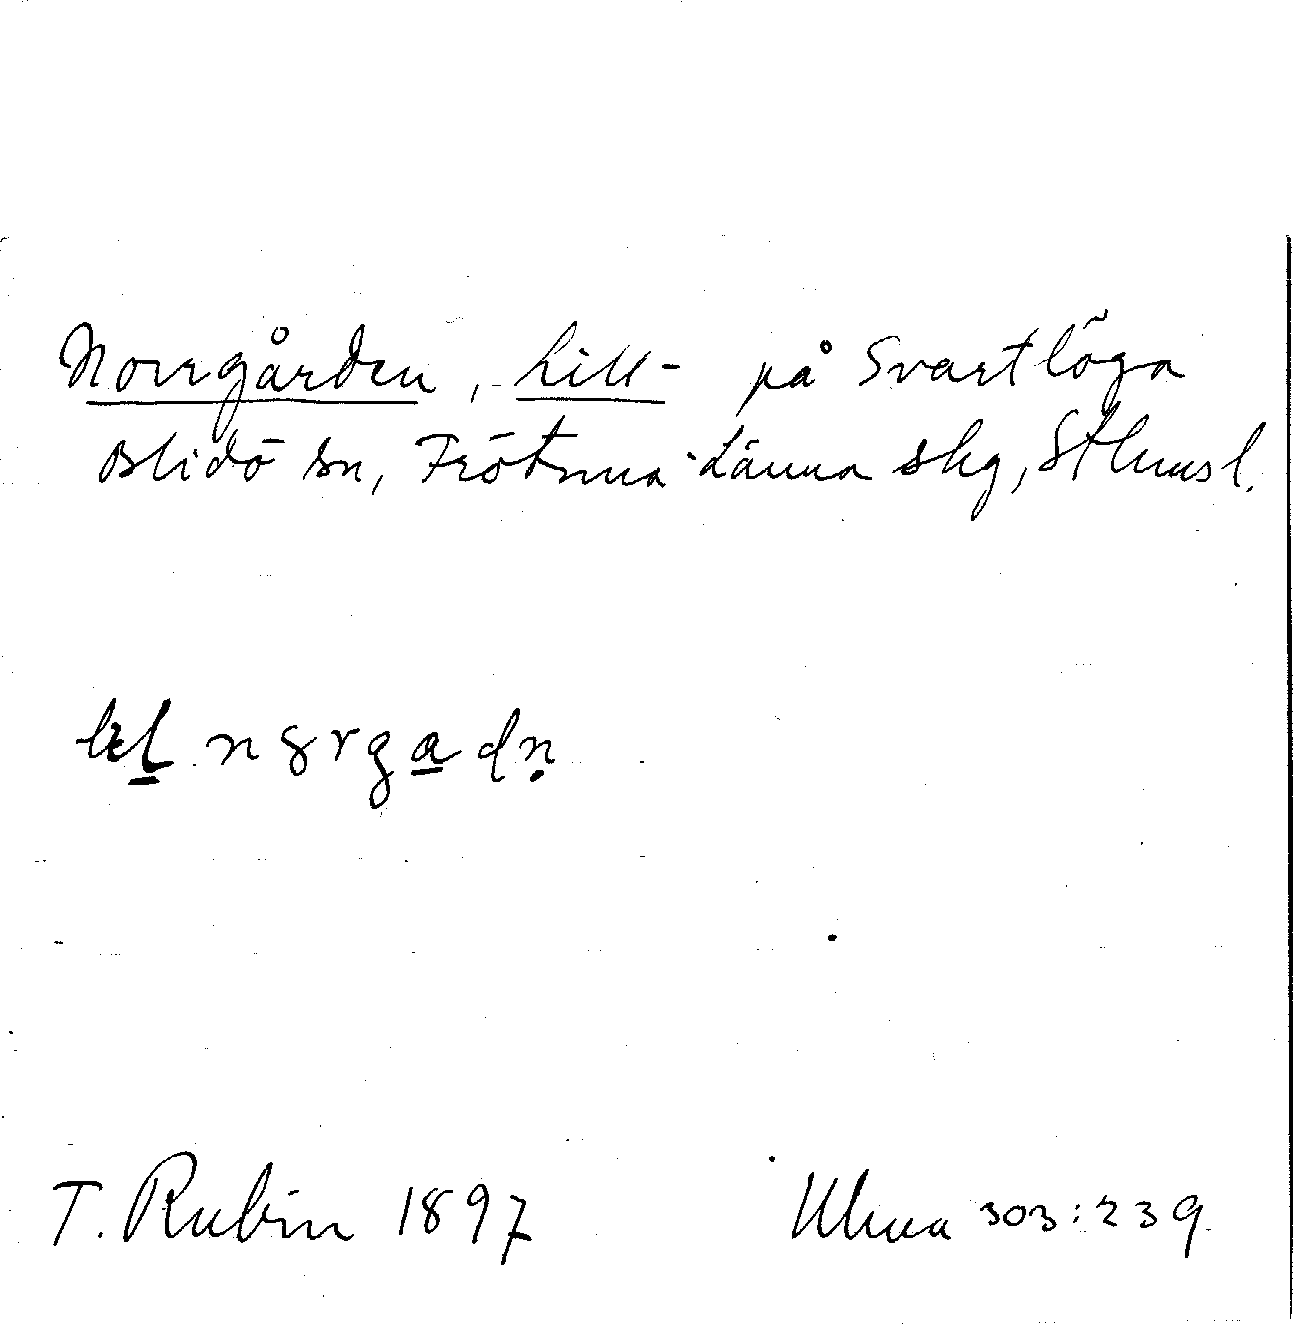 Norrgården, Lill- på Svartlöga
Blidö sn, Frötuna-Länna skg, Sthms l.
lɪl nȣrgadṇ
T. Rubin 1897 Uluua 303:239